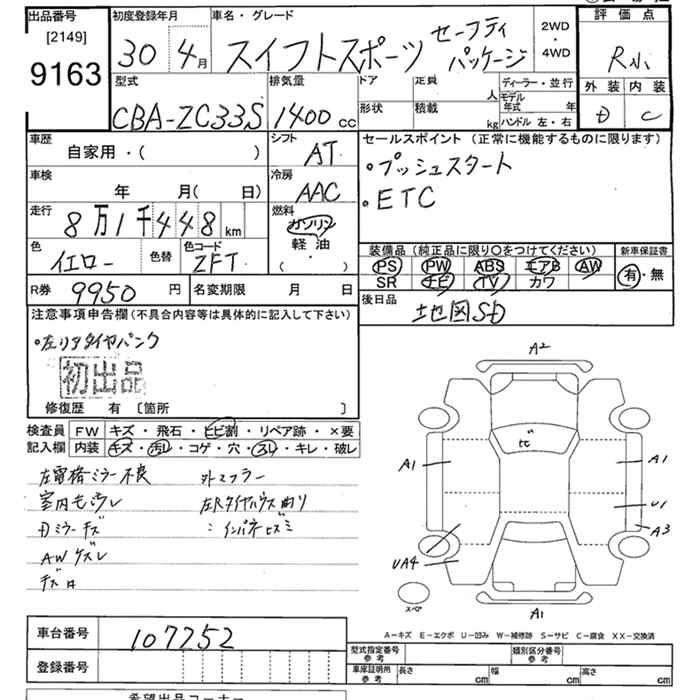 出品番号
[2149]
9163
初度登録年月
30年 4月
車名・グレード
スイフトスポーツ セーフティパッケージ
2WD
・
4WD
評価点
R小
外装 内装
D C
型式
CBA-ZC33S
排気量
1400 cc
ドア
形状
定員 人
積載 kg
ディーラー・並行
モデル年式 年
ハンドル 左・右
車歴
自家用・( )
シフト
AT
セールスポイント (正常に機能するものに限ります)
・プッシュスタート
・ETC
車検
年 月( 日)
冷房
AAC
走行
8万1千448 km
燃料
ガソリン
軽油
( ・ )
色
イエロー
色替
色コード
ZFT
装備品 (純正品に限り〇をつけてください)
PS PW ABS エアB AW
SR ナビ TV カワ
新車保証書
有・無
R券 9950 円
名変期限 月 日
後日品
地図SD
注意事項申告欄(不具合内容等は具体的に記入して下さい)
・左リアタイヤパンク
初出品
修復歴 有 〔箇所 〕
検査員 FW キズ・飛石・ヒビ割・リペア跡・×要
記入欄 内装 キズ・汚レ・コゲ・穴・スレ・キレ・破レ
左電格ミラー不良 外マフラー
室内モウレ 左Rタイヤハウス曲り
Dミラーキズ :インパネヒズミ
AWケズレ
A2
ヒビ
A1
A1
U1
A3
UA4
スペア
A1
A-キズ E-エクボ U-凹み W-補修跡 S-サビ C-腐食 XX-交換済
車台番号
107252
登録番号
型式指定番号
参考
類別区分番号
参考
車庫証明用
参考
長さ cm 幅 cm 高さ cm
希望出品コーナー